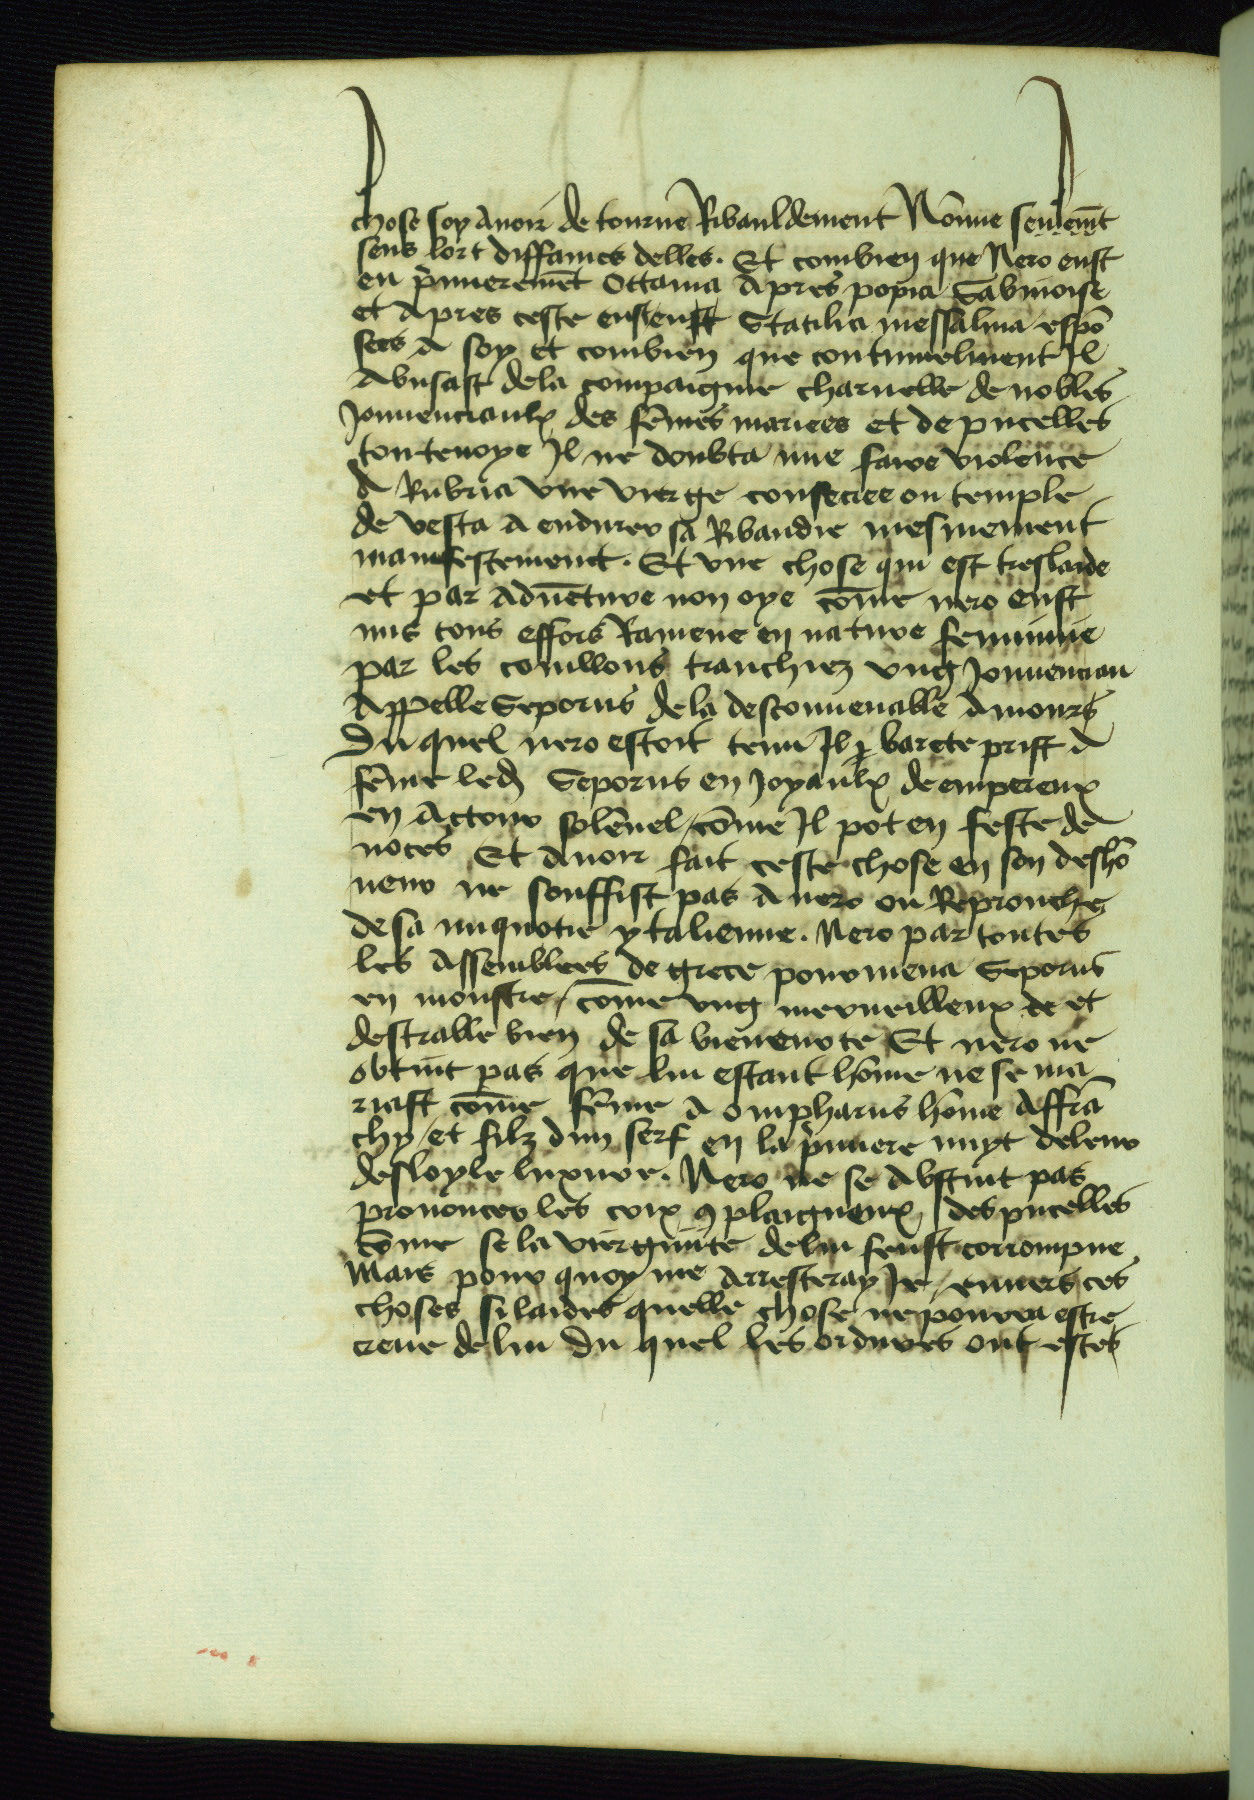 chose soy auoir de tourne Ribauldement Nōnne seulem̄t
sens lort diffames delles. Et combien que Nero eust
eu p̄mierem̄et Ottauia Apres popia Sabinoise
et Apres ceste eust Statilia messalina espō
sees A soy et combien que continuelment Il
Abusast dela compaignie charnelle de nobles
Jouuenciaulx des fēmes mariees et de pucelles
toutenoye Il ne doubta mie faire violence
A Rubria vne vierge consecree ou temple
de vesta A endurer sa Ribaudie mesmement
manifestement. Et vne chose qui est treslaide
et par aduēture non oye cōme nero eust
mis tous effors Ramene en nature feminine
par les couillons tranchiez vng Jouuenciau
Appelle Seporus dela desconuenable Amours
Du quel nero estoit tenu Il p barete prist A
fēme led Seporus en Joyaulx de empereur
en Actour solēnel / cōme Il pot en feste de
noces Et Auoir fait ceste chose en son deshō
neur ne souffist pas A nero ou Reprouche
de sa iniquotie ytalienne. Nero par toutes
les Assemblees de grece pourmena Seporus
en monstre / cōme vng merueilleux de et
destrable bien de sa Et nero ne
obtint pas que lui estant hōme ne se ma
riast cōme fēme A ompharus hōme Affrā
chy / et filz dun serf en la p̄miere nuyt deleur
desloyle luxure. Nero ne se Abstint pas
prononcer les voix 9plaigneux des pucelles
cōme se la vierginite delui feust corrompue
Mais pour quoy me Arresteray Je / enuers ces
choses si laides quelle chose ne pourra estre
creue de lui Du quel les ordures ont estes